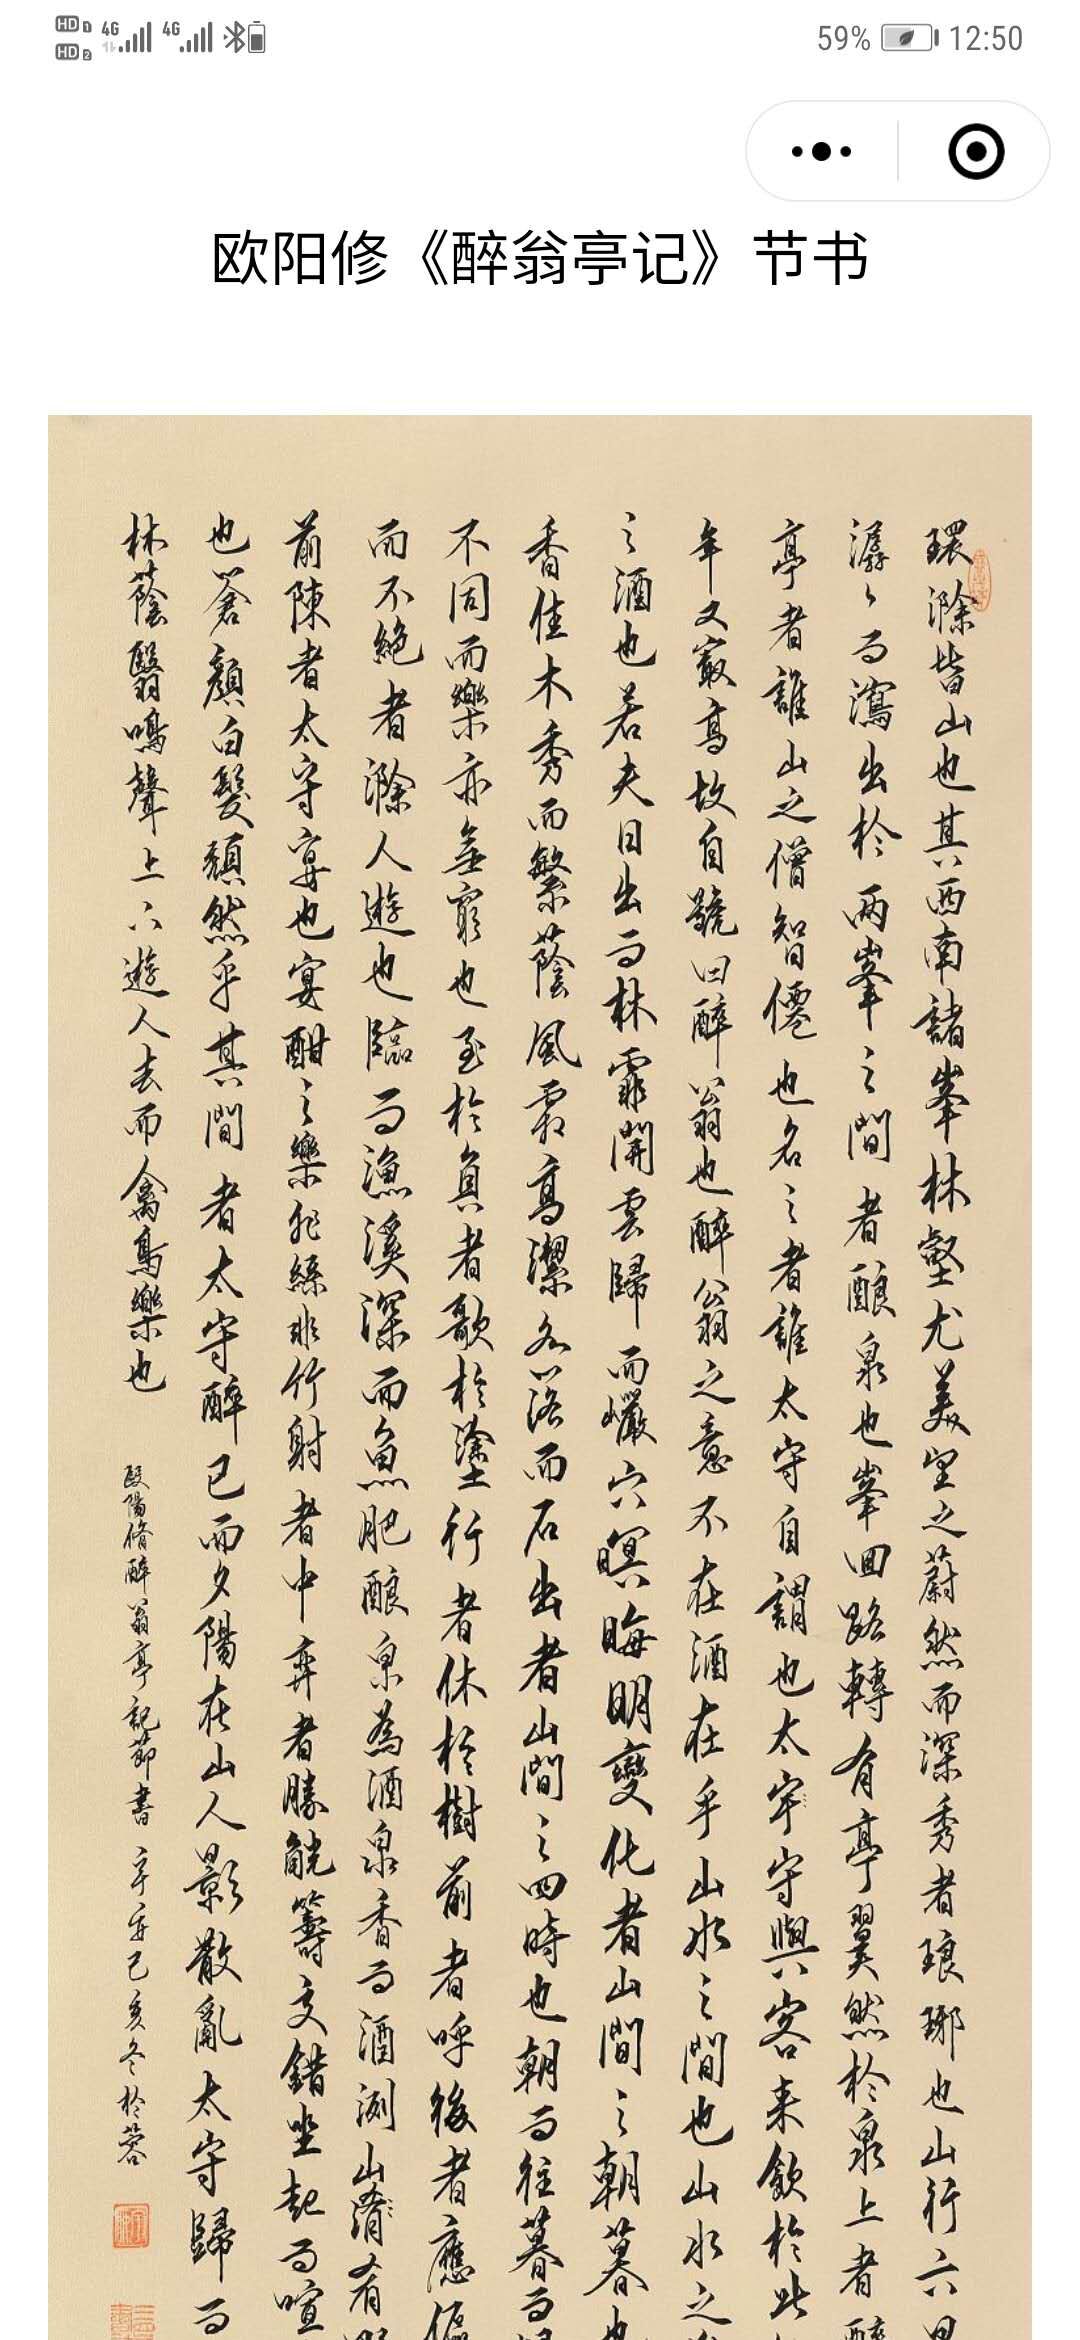 HD 1 4G 4G
HD 2
59% 12:50
欧阳修《醉翁亭记》节书
環滁皆山也其西南諸峯林壑尤美望之蔚然而深秀者琅琊也山行六里
潺々而瀉出於兩峯之間者釀泉也峯回路轉有亭翼然於泉上者醉
亭者誰山之僧智僊也名之者誰太守自謂也太守守與客来飲於此
年又最高故自號曰醉翁也醉翁之意不在酒在乎山水之間也山水之
之酒也若夫日出而林霏開雲歸而巖穴暝晦明變化者山間之朝暮也
香佳木秀而繁蔭風霜高潔水落而石出者山間之四時也朝而往暮而歸
不同而樂亦無窮也至於負者歌於塗行者休於樹前者呼後者應傴
而不絕者滁人遊也臨而漁溪深而魚肥釀泉為酒泉香而酒洌山肴
前陳者太守宴也宴酣之樂非絲非竹射者中弈者勝觥籌交錯坐起而喧
也蒼顏白髮頹然乎其間者太守醉已而夕陽在山人影散亂太守歸而
林蔭翳鳴聲上下遊人去而禽鳥樂也
歐陽脩醉翁亭記節書 己亥冬於蓉